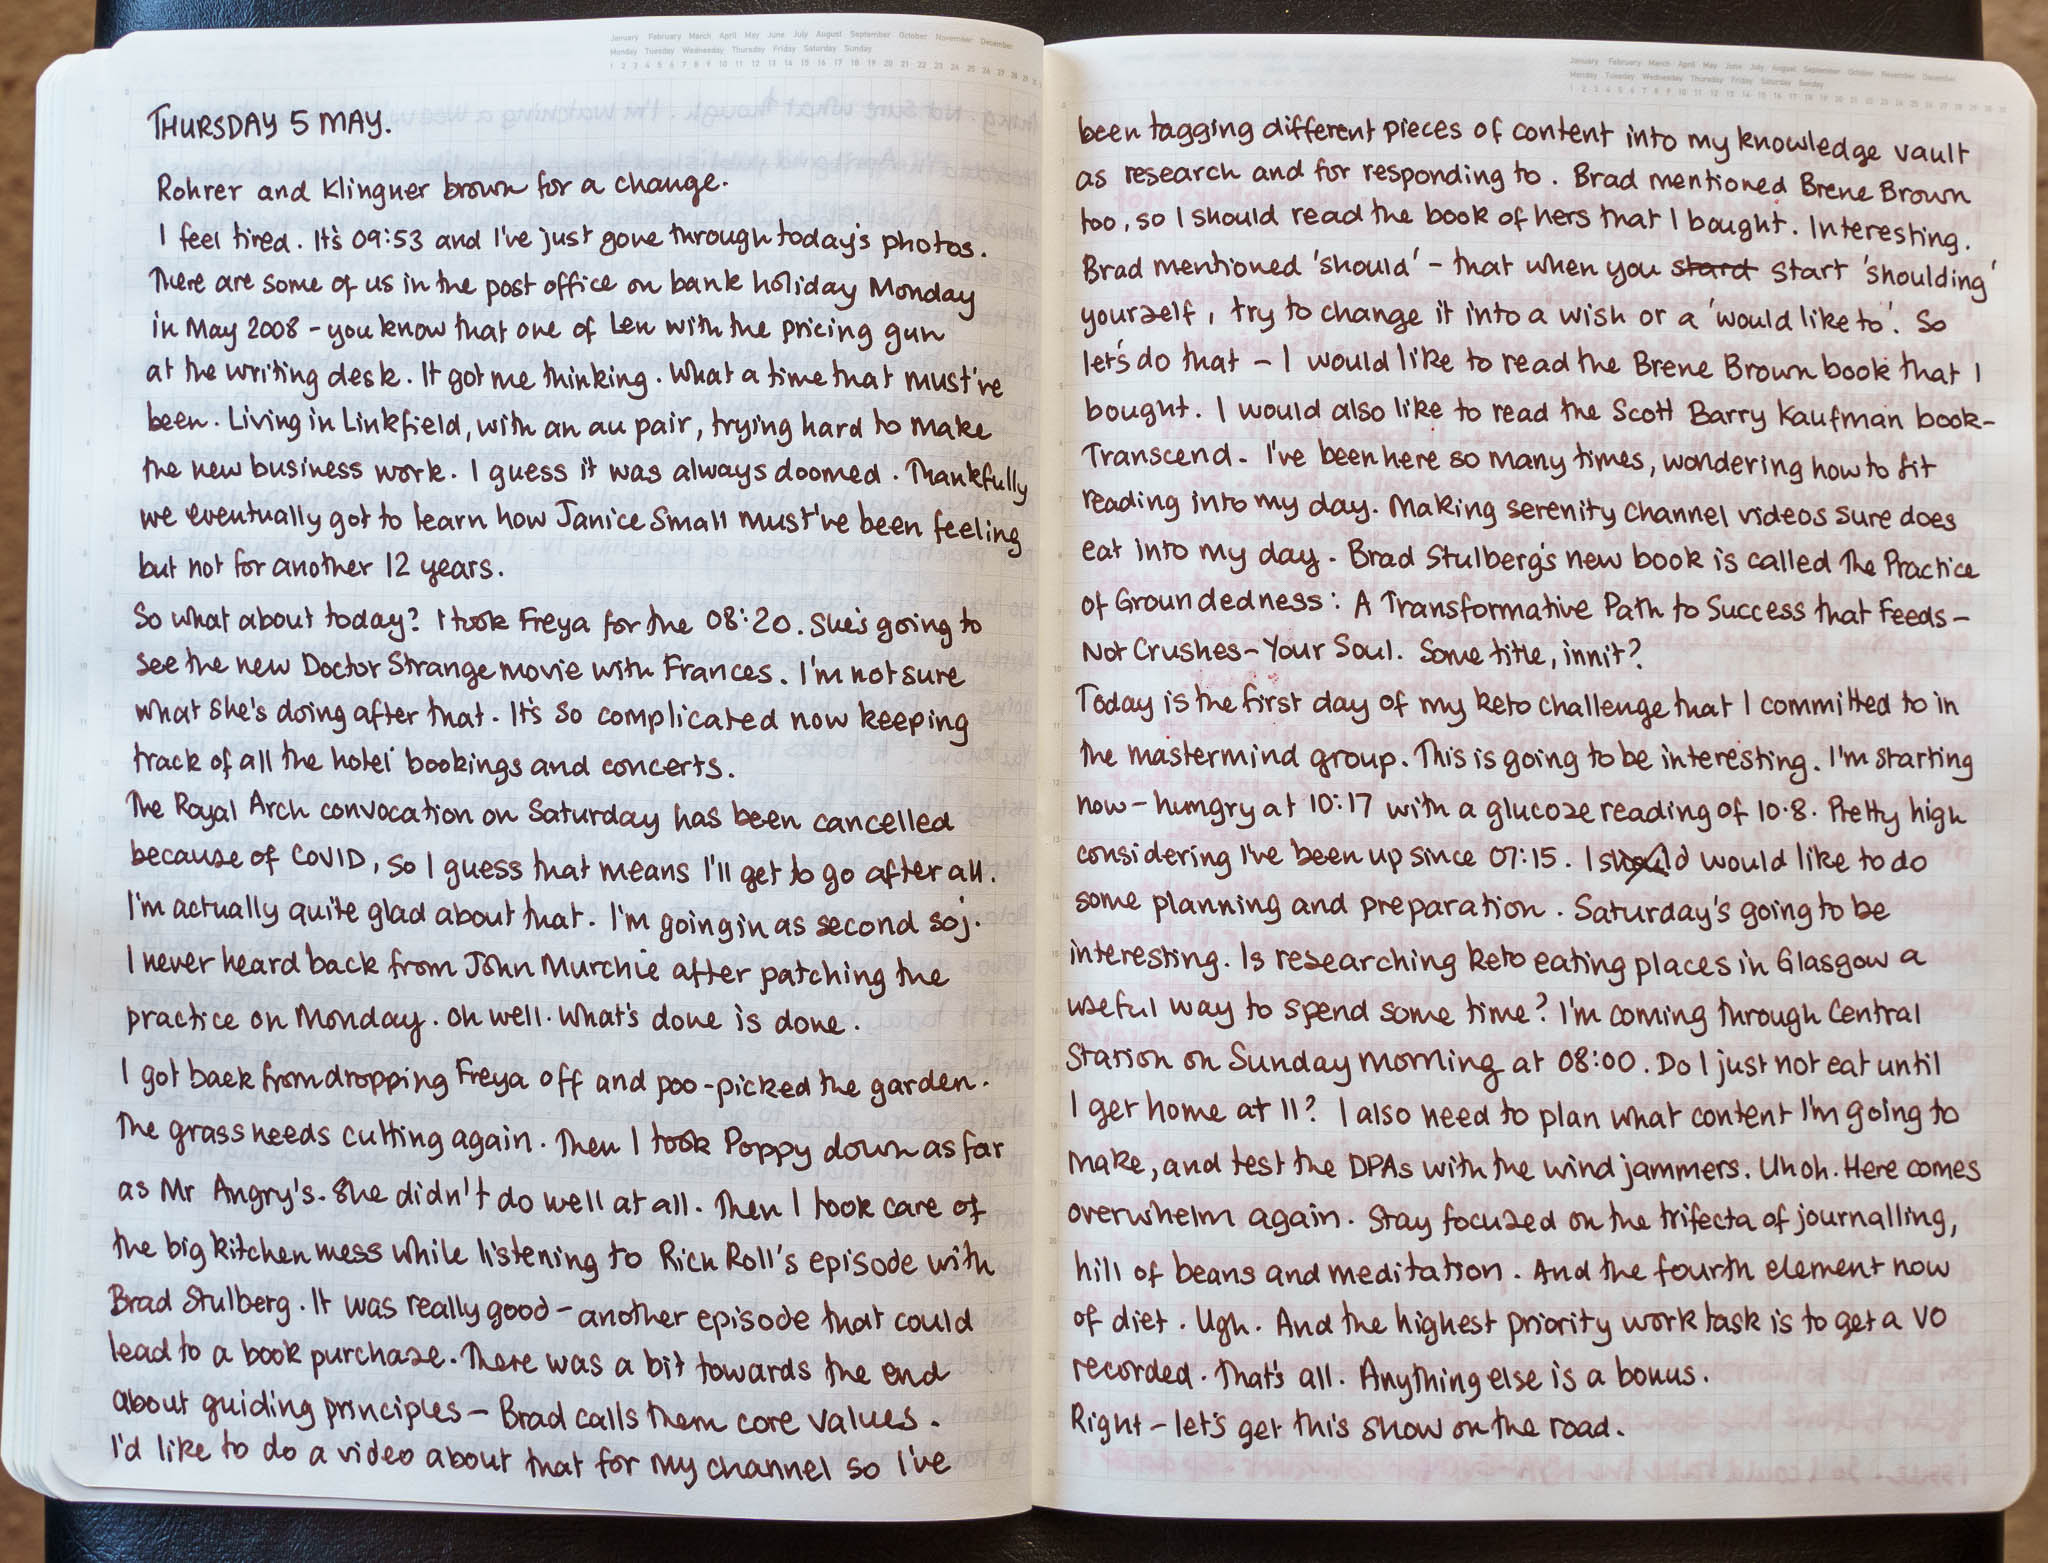 January February March April May June July August September October November December
Monday Tuesday Wednesday Thursday Friday Saturday Sunday
1 2 3 4 5 6 7 8 9 10 11 12 13 14 15 16 17 18 19 20 21 22 23 24 25 26 27 28 29 30
THURSDAY 5 MAY.
Rohrer and Klingner brown for a change.
I feel tired. It's 09:53 and I've just gone through today's photos.
There are some of us in the post office on bank holiday Monday
in May 2008 - you know that one of Len with the pricing gun
at the writing desk. It got me thinking. What a time that must've
been. Living in Linkfield, with an au pair, trying hard to make
the new business work. I guess it was always doomed. Thankfully
we eventually got to learn how Janice Small must've been feeling
but not for another 12 years.
So what about today? I took Freya for the 08:20. She's going to
see the new Doctor Strange movie with Frances. I'm not sure
what she's doing after that. It's so complicated now keeping
track of all the hotel bookings and concerts.
The Royal Arch convocation on Saturday has been cancelled
because of COVID, so I guess that means I'll get to go after all.
I'm actually quite glad about that. I'm going in as second soj.
I never heard back from John Murchie after patching the
practice on Monday. Oh well. What's done is done.
I got back from dropping Freya off and poo-picked the garden.
The grass needs cutting again. Then I took Poppy down as far
as Mr Angry's. She didn't do well at all. Then I took care of
the big kitchen mess while listening to Rich Roll's episode with
Brad Stulberg. It was really good - another episode that could
lead to a book purchase. There was a bit towards the end
about guiding principles - Brad calls them core values.
I'd like to do a video about that for my channel so I've
January February March April May June July August September October November December
Monday Tuesday Wednesday Thursday Friday Saturday Sunday
1 2 3 4 5 6 7 8 9 10 11 12 13 14 15 16 17 18 19 20 21 22 23 24 25 26 27 28 29 30 31
been tagging different pieces of content into my knowledge vault
as research and for responding to. Brad mentioned Brene Brown
too, so I should read the book of hers that I bought. Interesting.
Brad mentioned 'should' - that when you stard start 'shoulding'
yourself, try to change it into a wish or a 'would like to'. So
let's do that - I would like to read the Brene Brown book that I
bought. I would also like to read the Scott Barry Kaufman book -
Transcend. I've been here so many times, wondering how to fit
reading into my day. Making serenity channel videos sure does
eat into my day. Brad Stulberg's new book is called The Practice
of Groundedness: A Transformative Path to Success that Feeds -
Not Crushes - Your Soul. Some title, innit?
Today is the first day of my keto challenge that I committed to in
the mastermind group. This is going to be interesting. I'm starting
now - hungry at 10:17 with a glucose reading of 10.8. Pretty high
considering I've been up since 07:15. I should would like to do
some planning and preparation. Saturday's going to be
interesting. Is researching keto eating places in Glasgow a
useful way to spend some time? I'm coming through Central
Station on Sunday morning at 08:00. Do I just not eat until
I get home at 11? I also need to plan what content I'm going to
make, and test the DPAs with the wind jammers. Uh oh. Here comes
overwhelm again. Stay focused on the trifecta of journalling,
hill of beans and meditation. And the fourth element now
of diet. Ugh. And the highest priority work task is to get a VO
recorded. That's all. Anything else is a bonus.
Right - let's get this show on the road.